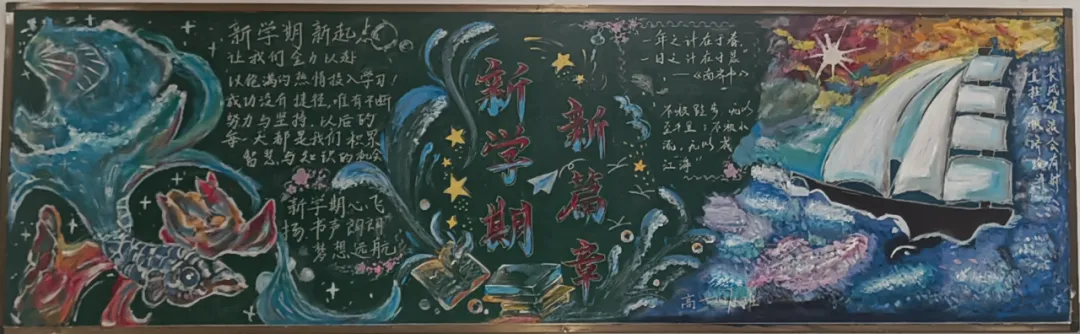 新学期 新起点
让我们全力以赴
以饱满的热情投入学习!
成功没有捷径,唯有不断
努力与坚持,以后的
每一天都是我们积累
智慧与知识的机会
新学期心飞
扬 书声朗朗
梦想远航
新学期
新篇章
一年之计在于春,
一日之计在于
不积跬步,无以
至千里;不积小
流,无以成
江海
长风破浪会有时
直挂云帆济沧海
高一